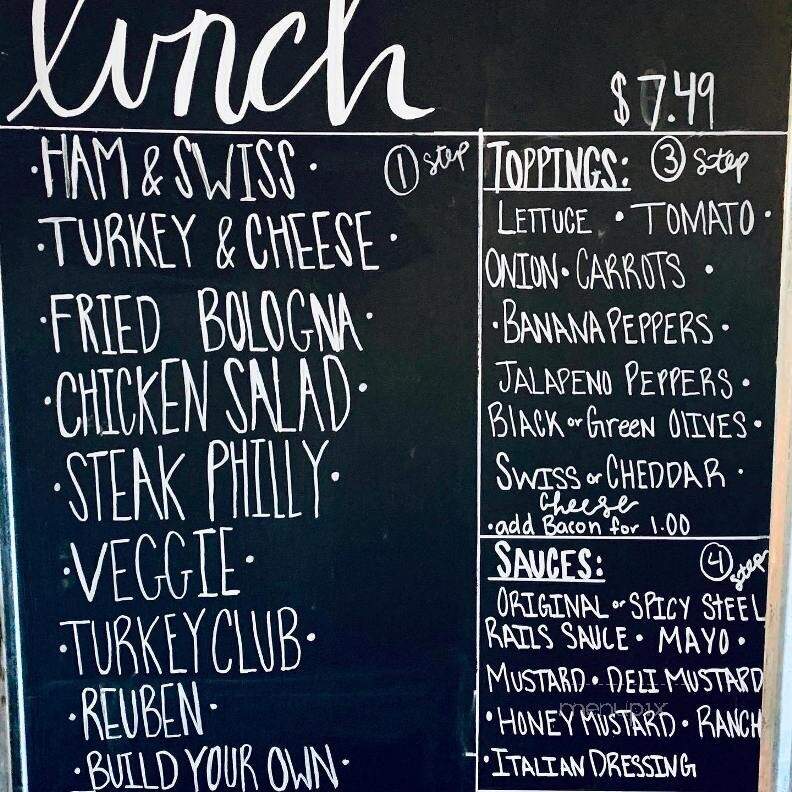 lunch
$7.49
·HAM & SWISS·
① Step
·TURKEY & CHEESE·
·FRIED BOLOGNA·
·CHICKEN SALAD·
·STEAK PHILLY·
·VEGGIE·
·TURKEY CLUB·
·REUBEN·
·BUILD YOUR OWN·
TOPPINGS: ③ Step
LETTUCE · TOMATO·
ONION· CARROTS ·
·BANANA PEPPERS·
JALAPENO PEPPERS·
BlACK or GreeN OlIVES·
SWISS or CHEDDAR ·
Cheese
·add Bacon for 1.00
SAUCES: ④ Step
ORIGINAL or SPICY STEEL
RAILS SAUCE· MAYO·
MUSTARD· DELI MUSTARD
·HONEY MUSTARD· RANCH
·ITALIAN DRESSING
menupix